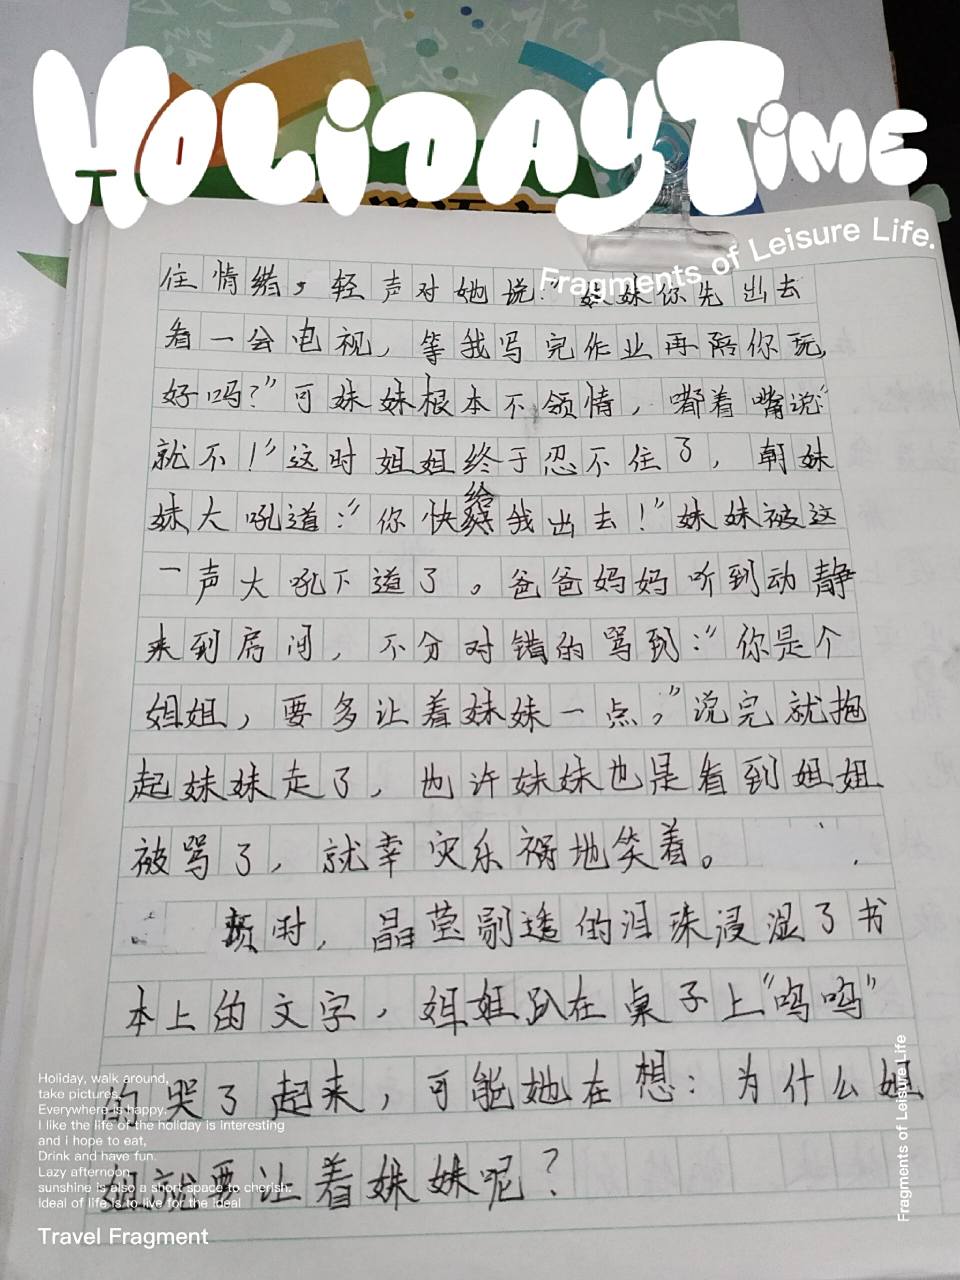 HOLIDAY TIME
Fragments of Leisure Life.
住情绪，轻声对她说："妹妹你先出去
看一会电视，等我写完作业再陪你玩，
好吗？"可妹妹根本不领情，嘟着嘴说"
就不！"这时姐姐终于忍不住了，朝妹
妹大吼道："你快给我出去！"妹妹被这
一声大吼下道了。爸爸妈妈听到动静
来到房间，不分对错的骂到："你是个
姐姐，要多让着妹妹一点，"说完就抱
起妹妹走了，也许妹妹也是看到姐姐
被骂了，就幸灾乐祸地笑着。
顿时，晶莹剔透的泪珠浸湿了书
本上的文字，姐姐趴在桌子上"呜呜"
的哭了起来，可能她在想：为什么姐
姐就要让着妹妹呢？
Holiday, walk around,
take pictures,
Everywhere is happy.
I like the life of the holiday is interesting
and i hope to eat,
Drink and have fun.
Lazy afternoon,
sunshine is also a short space to cherish.
ideal of life is to live for the ideal
Travel Fragment
Fragments of Leisure Life